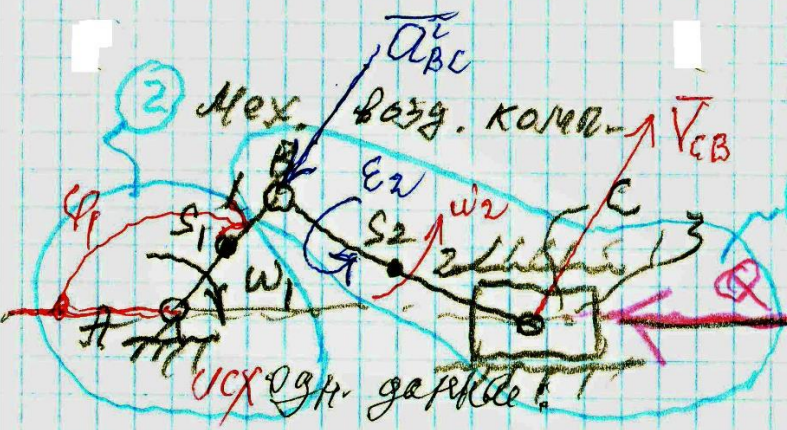 a̅ᵗBC
2
Мех. возд. комп.
V̅CB
B
φ1
S1
ε2
ω2
S2
C
2
3
ω1
Q
A
исходн. данные: